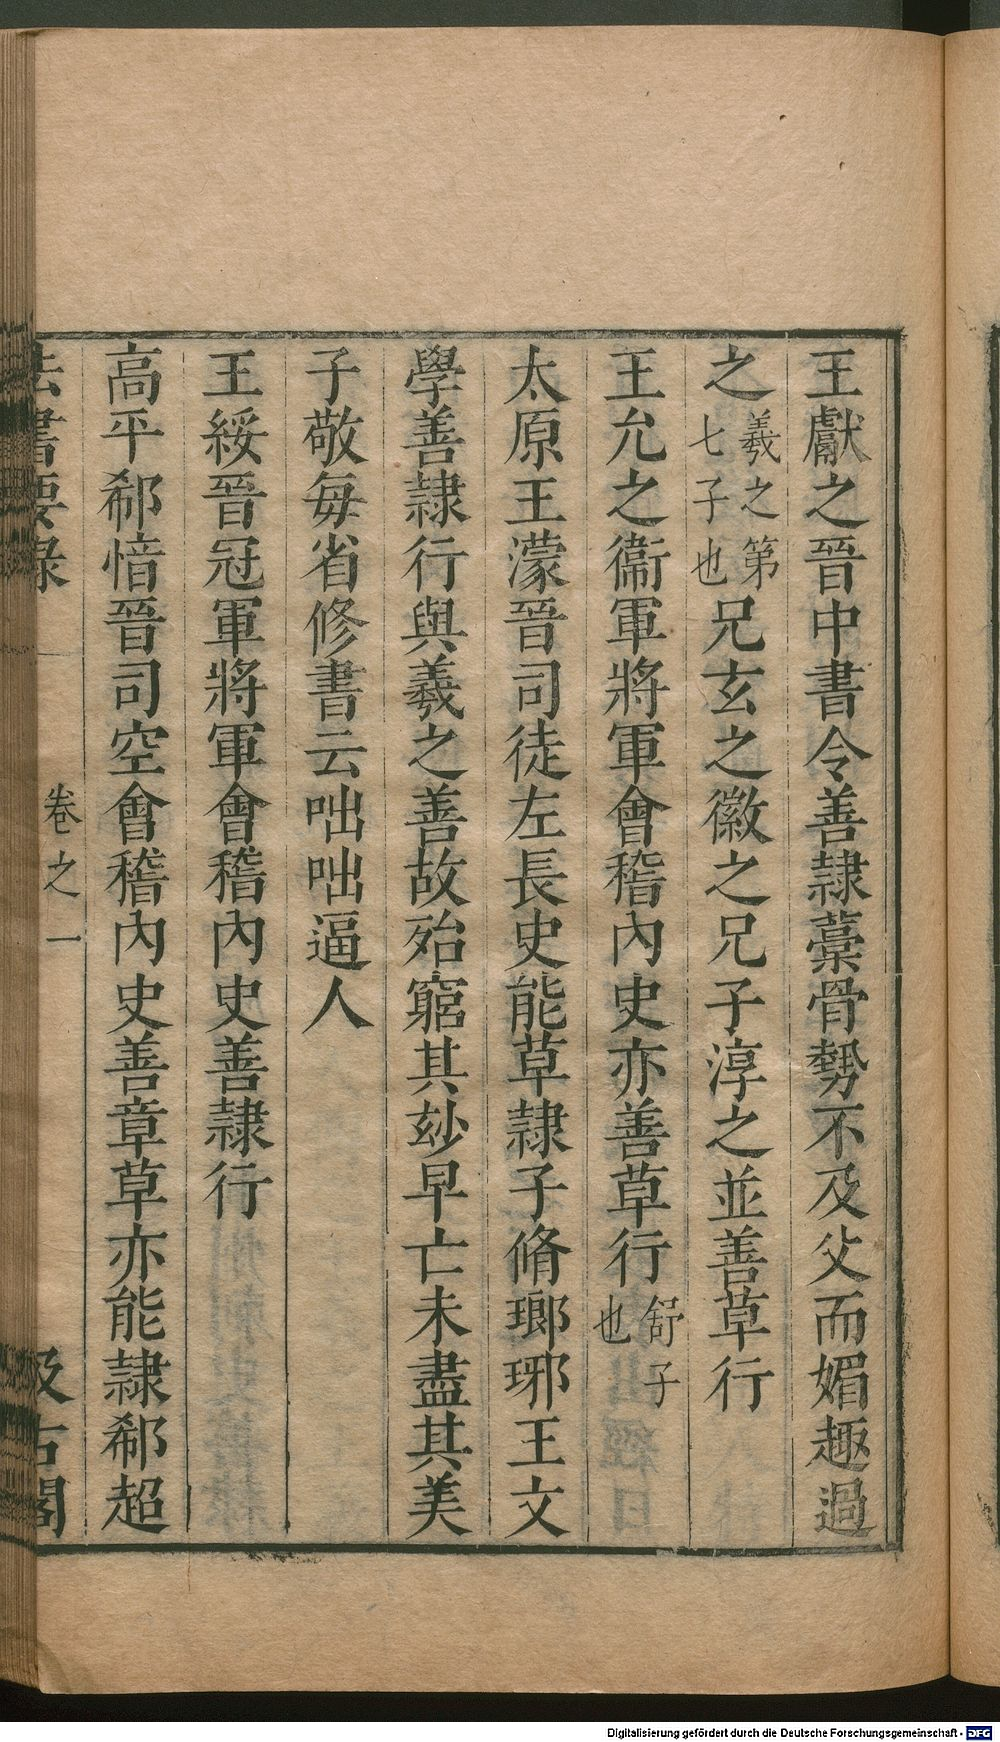 王獻之晉中書令善隸藁骨勢不及父而媚趣過
之羲之第七子也兄玄之徽之兄子淳之並善草行
王允之衞軍將軍會稽內史亦善草行舒子也
太原王濛晉司徒左長史能草隸子脩瑯琊王文
學善隸行與羲之善故殆窮其玅早亡未盡其美
子敬每省修書云咄咄逼人
王綏晉冠軍將軍會稽內史善隸行
高平郗愔晉司空會稽內史善章草亦能隸郗超
法書要錄 卷之一 汲古閣
Digitalisierung gefördert durch die Deutsche Forschungsgemeinschaft - DFG